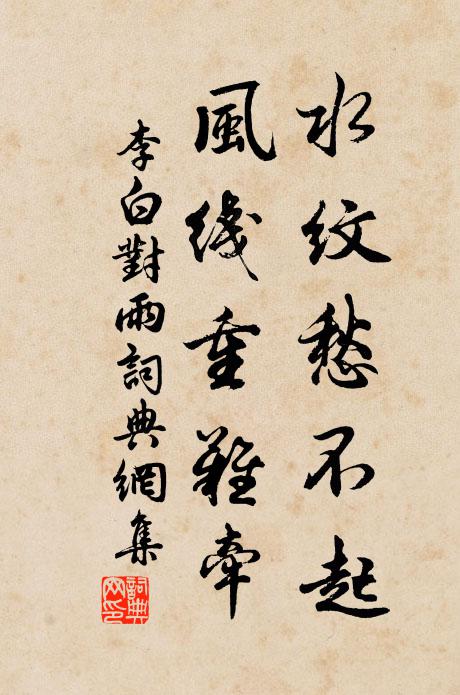 水紋愁不起
風綫重難牽
李白對雨詞典網集
詞典網印